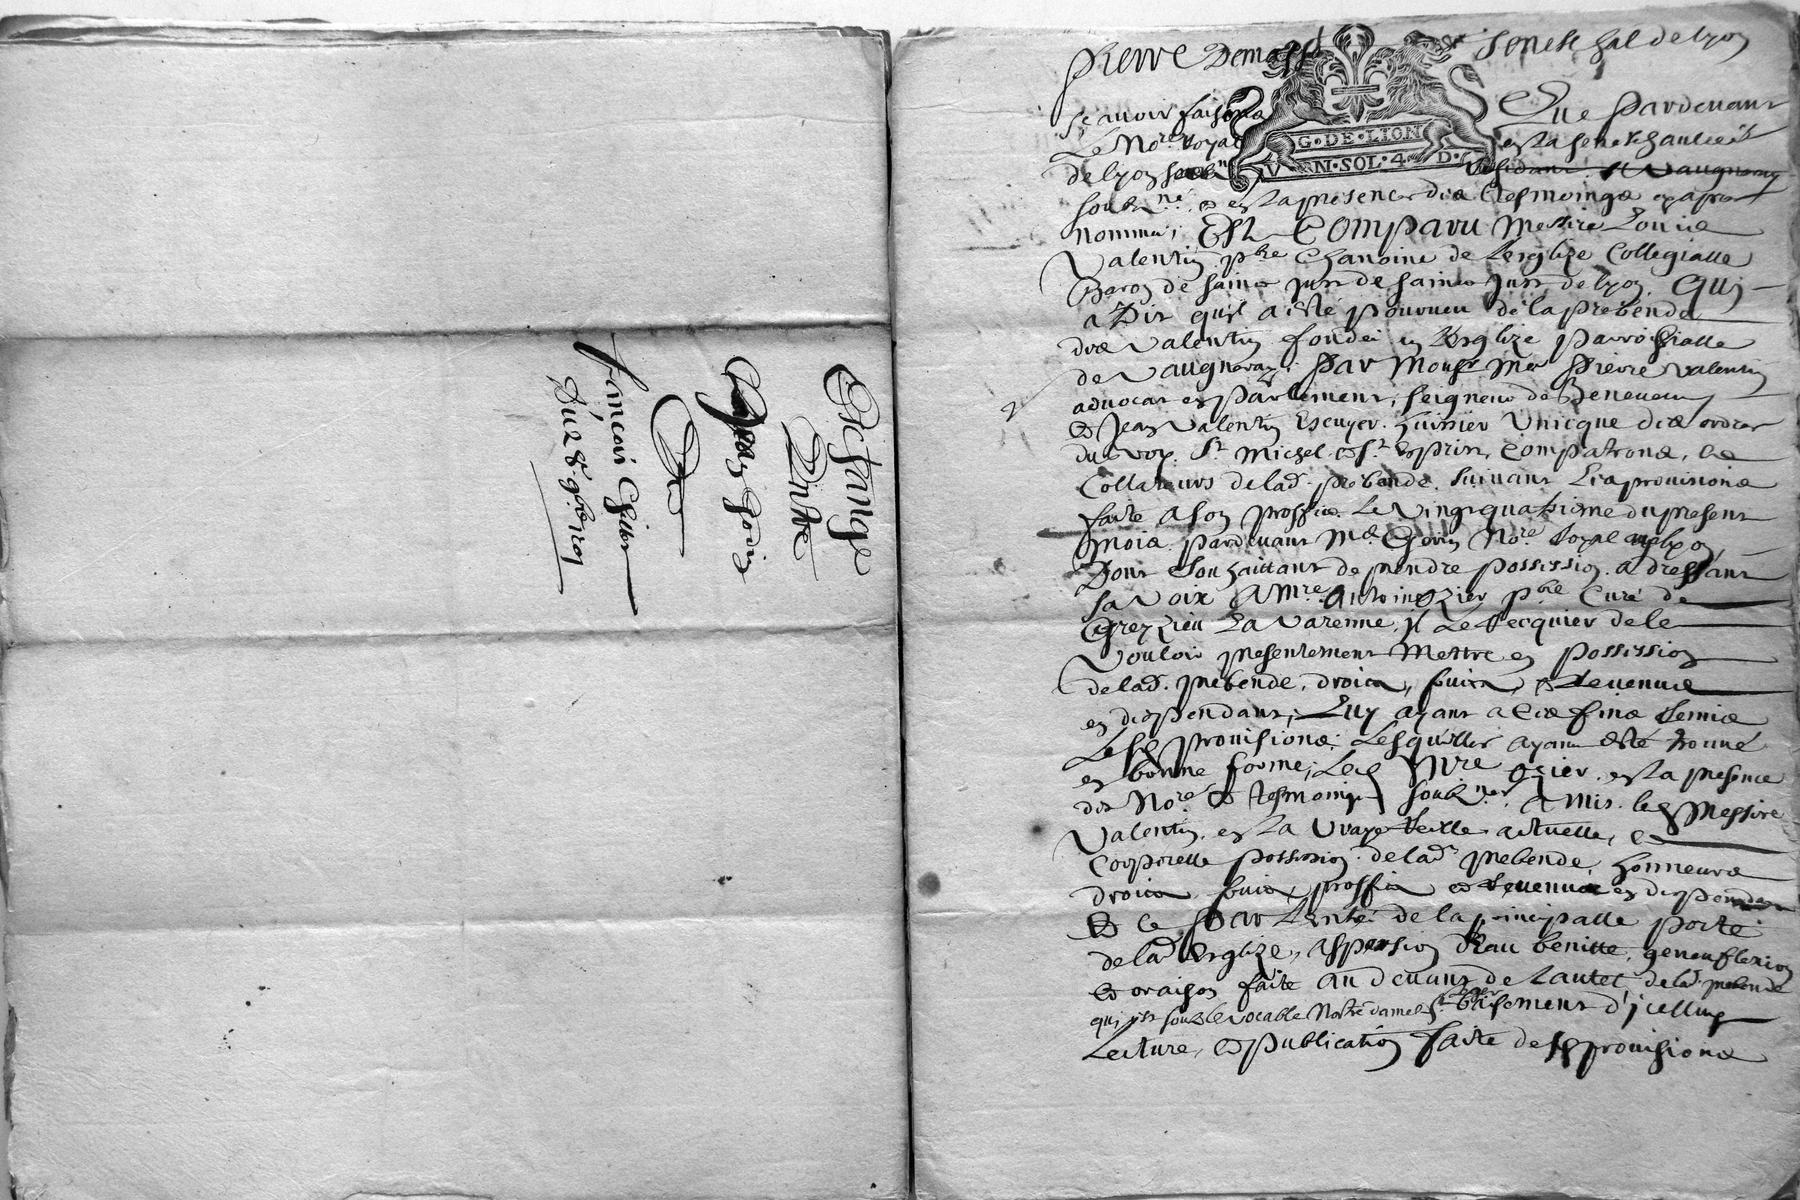 Eschange
Entre
Godin
Et
françois
Du 2 8bre 1701
Pierre Demasso Seneschal de lyon
Sçavoir faisons Que Pardevant
Le Nore Royal en la seneschaucée
G·DE·LION
VN·SOL·4·D·
de lyon residant a Vaugneray
soubzne, & en la presence des tesmoings cy apres
nommés, Est Comparu Messire Louis
Valentin pbre Chanoine de Lesglize Collegialle
Baron de sainct Just de sainct Just de lyon, Qui
a Dit qu'il a esté pourveu de la prebende
des Valentin fondée en Lesglize parrochialle
de Vaugneray, par Monsr Mre Pierre Valentin
advocat en parlement, seigneur de
& Jean Valentin Escuyer, huissier Unicque des ordres
du roy, St Michel & St Esprit, Compatrons, &
Collateurs de lad. prebende, suivant Les provisions
faite a son proffit Le vingt quatriesme du present
mois pardevant Me Nore Royal aud lyon,
Dont Souhaittant de prendre possession, adressant
sa Voix A Mre Antoine Ogier pbre Curé de
Grezieu La Varenne, il Le Recquier de le
Vouloir presentement Mettre en possession
de lad. prebende, droicts, fruits, & Revenus
en despendant, Luy ayant a ces fins Remis
Lesd provisions, Lesquelles ayant esté trouvé
en bonne forme, Led Mre Ogier, en la presence
des Nore & tesmoings soubznes, A mis led Messire
Valentin, en la Vraye Reelle actuelle, &
Corporelle possession de lad prebende, honneurs
droicts, fruits, proffits & Revenus en despendans
& ce par Lentrée de la principalle porte
de lad Esglize, aspersion d'Eau benitte, genouflexion
& oraison faite au devant de Lautel de lad. prebende
qui est soubz le vocable Nostre dame baisement d'icelluy
Lecture, & publication faite desd provisions